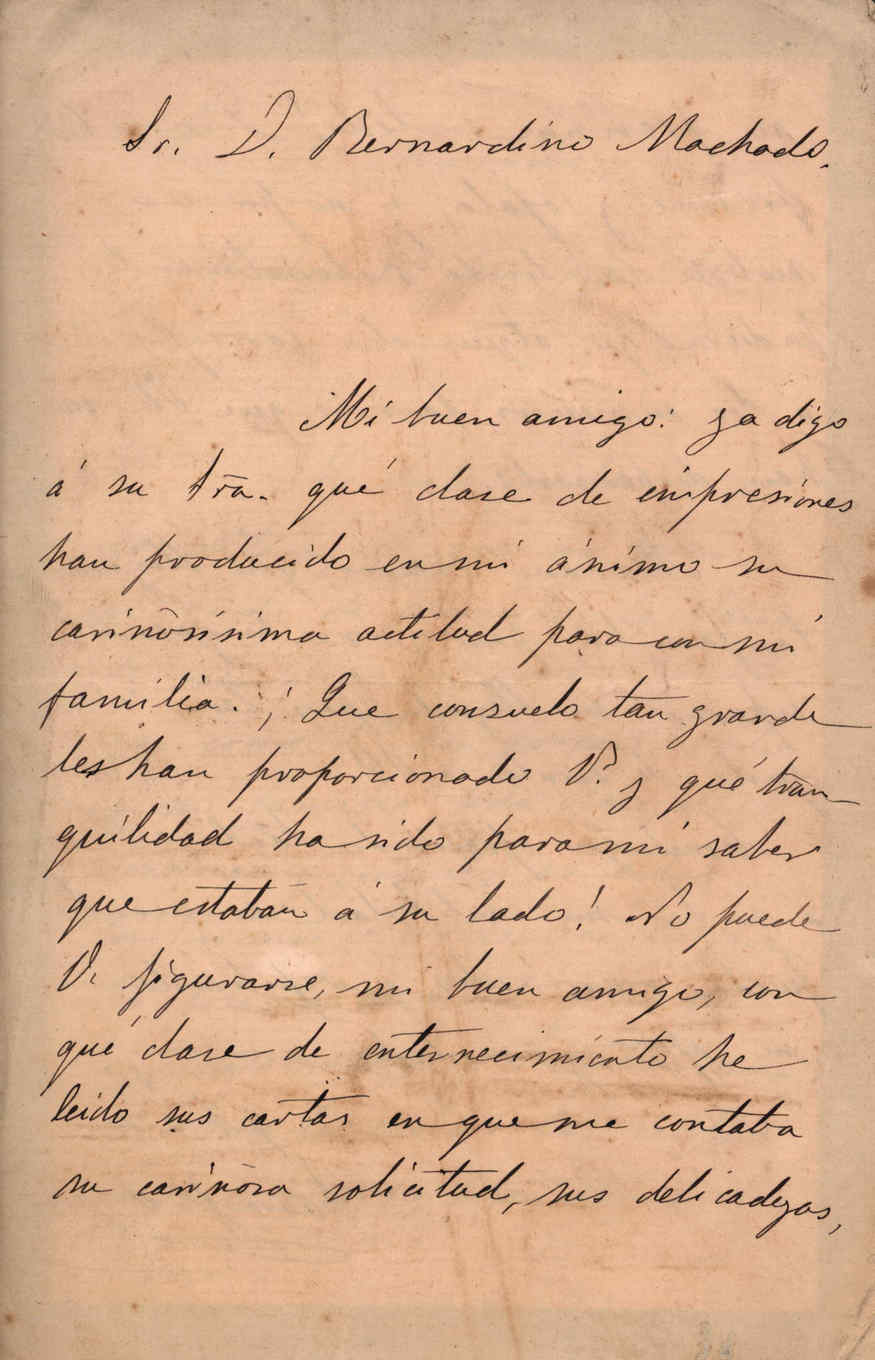 Sr. D. Bernardino Machado.
Mi buen amigo: ya digo
á su Sra. qué clase de impresiones
han producido en mi ánimo su
cariñosísima actitud para con mi
familia. ¡Que consuelo tan grande
les han proporcionado V.s y qué tran-
quilidad ha sido para mi saber
que estaban á su lado! No puede
V. figurarse, mi buen amigo, con
qué clase de enternecimiento he
leido sus cartas en que me contaba
su cariñosa solicitud, sus delicadezas,